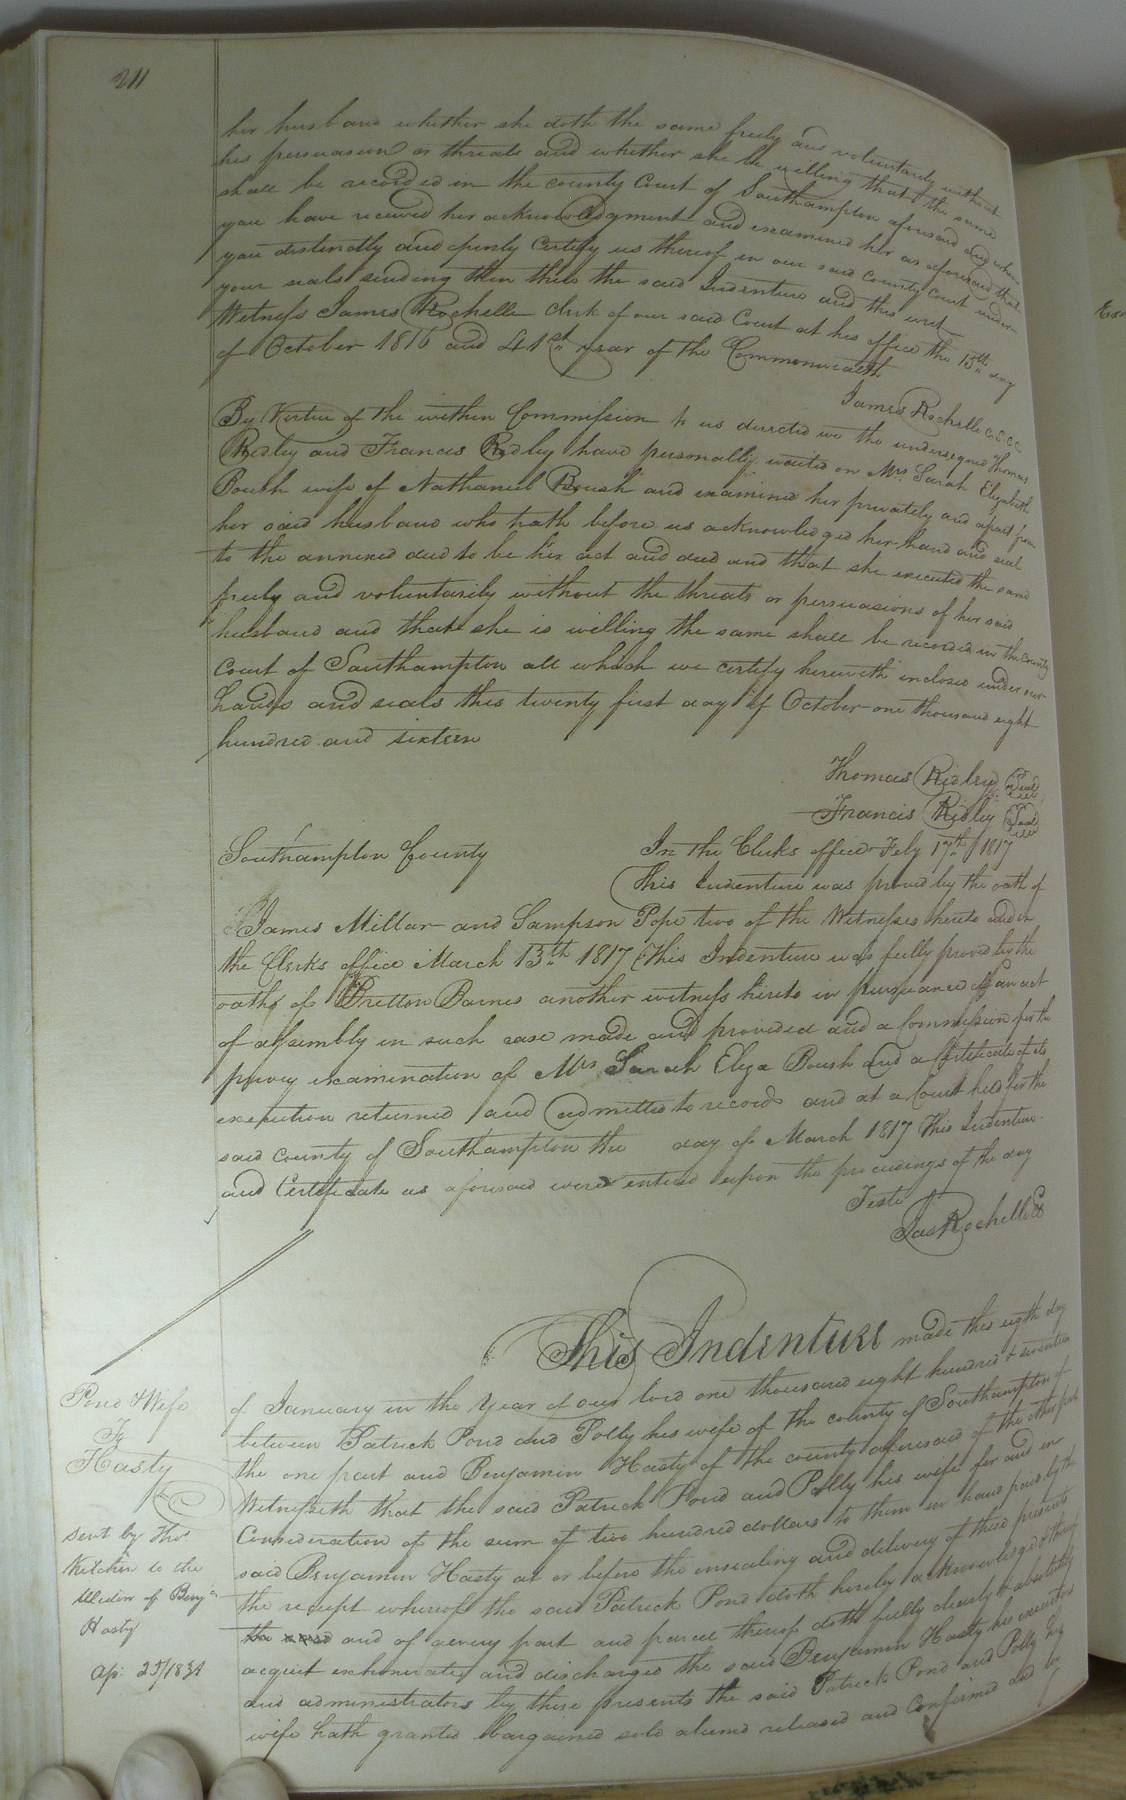 211
her husband whether she doth the same freely and voluntarily without
his persuasion or threats and whether she be willing that the same
shall be recorded in the county Court of Southampton aforesaid and when
you have received her acknowledgment and examined her as aforesaid that
you distinctly and openly certify us thereof in our said County Court under
your seals sending then there the said Indenture and this writ
Witness James Rochelle clerk of our said Court at his office the 15th day
of October 1816 and 41st year of the Commonwealth
James Rochelle C.S.C.C.
By Virtue of the within Commission to us directed we the undersigned Thomas
Ridley and Francis Ridley have personally waited on Mrs Sarah Elizabeth
Boush wife of Nathaniel Boush and examined her privately and apart from
her said husband who hath before us acknowledged her hand and seal
to the annexed deed to be her act and deed and that she executed the same
freely and voluntarily without the threats or persuasions of her said
husband and that she is willing the same shall be recorded in the County
Court of Southampton all which we certify herewith inclosed under our
hands and seals this twenty first day of October one thousand eight
hundred and sixteen
Thomas Ridley Seal
Francis Ridley Seal
Southampton County
In the Clerks office Feby 17th 1817
This Indenture was proved by the oath of
James Millar and Sampson Pope two of the Witnesses hereto and in
the Clerks office March 13th 1817 This Indenture was fully proved by the
oath of Bretton Barnes another witness hereto in pursuance of an act
of assembly in such case made and provided and a Commission for the
privy examination of Mrs Sarah Eliza Boush and a Certificate of its
execution returned and admitted to record and at a Court held for the
said county of Southampton the day of March 1817 This Indenture
and Certificate as aforesaid were entered upon the proceedings of the day
Teste
Jas Rochelle
This Indenture made this eigth day
of January in the Year of our lord one thousand eight hundred & seventeen
between Patrick Pond and Polly his wife of the county of Southampton of
the one part and Benjamin Hasty of the county aforesaid of the other part
Witnesseth that the said Patrick Pond and Polly his wife for and in
Consideration of the sum of two hundred dollars to them in hand paid by the
said Benjamin Hasty at or before the ensealing and delivery of these presents
the receipt whereof the said Patrick Pond doth hereby acknowledge & thereof
and of every part and parcel thereof doth fully clearly & absolutely
acquit exhonerate and discharge the said Benjamin Hasty his executors
and administrators by these presents the said Patrick Pond and Polly his
wife hath granted bargained sold aliened released and Confirmed and by
Pond & Wife
To
Hasty
sent by Thos
Kitchen to the
Widow of Benjn
Hasty
Ap: 25/1831